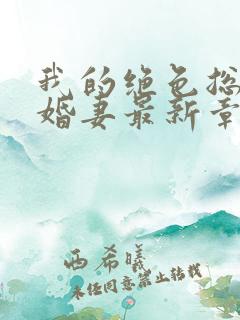 我的绝色总
婚妻最新章
西希曦
未经同意禁止转载